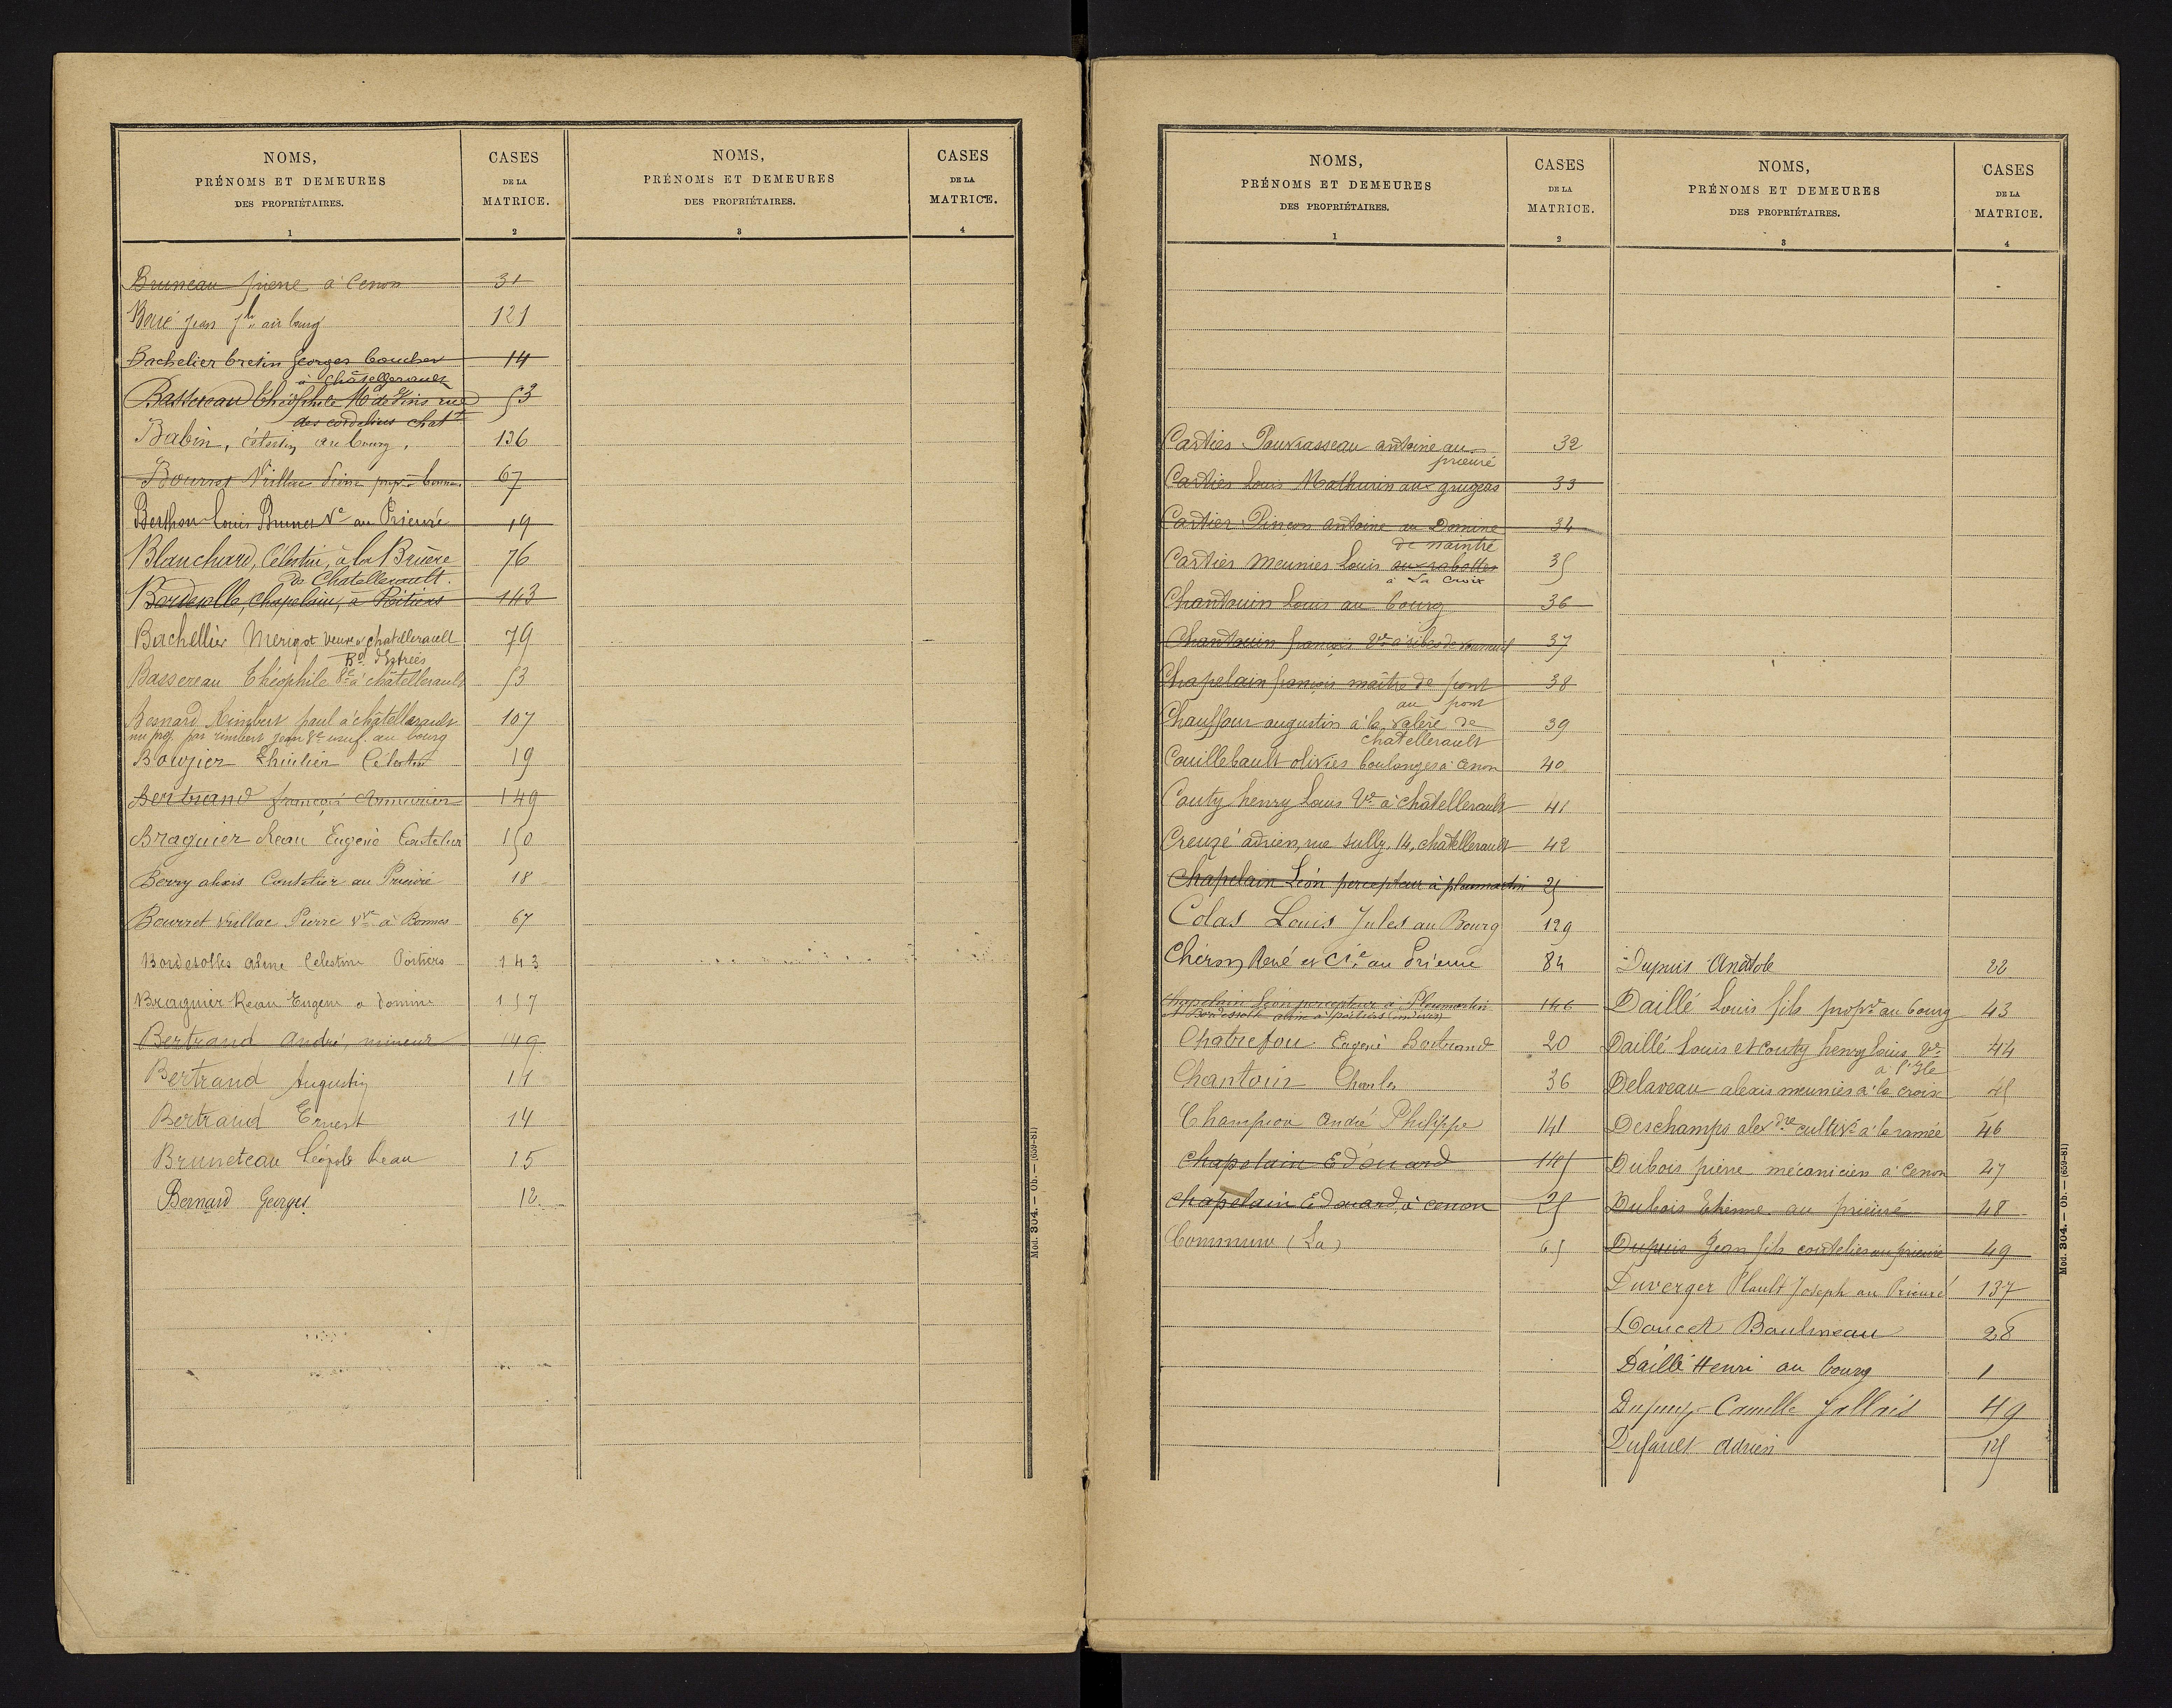 NOMS,
PRÉNOMS ET DEMEURES
DES PROPRIÉTAIRES.
1
CASES
DE LA
MATRICE.
2
NOMS,
PRÉNOMS ET DEMEURES
DES PROPRIÉTAIRES.
3
CASES
DE LA
MATRICE.
4
Bruneau pierre à Cenon 31
Boué jean au bourg 121
Bachelier bretin Georges boucher 14
à Châtellerault
Bassereau Théophile Md de Vins rue 53
des cordeliers chatt
Babin, Célestin, au bourg. 136
Bourret Viillac Pierre à bonnes 67
Berthon Louis Brunet Ve au Prieuré 19
Blanchard, Célestin, à la Bruère 76
de Chatellerault.
Bordesolle, Chapelain, à Poitiers 143
Bachellier Merigot veuve chatellerault 79
Bd d'Estrées
Bassereau Théophile Ve à châtellerault 53
Besnard Rimbert paul à châtellerault 107
nu prop. par rimbert jean Ve usuf. au bourg
Bougier Célestin 19
Bertrand françois Armurier 149
Braguier Reau Eugène Coutelier 150
Berry alexis Coutelier au Prieuré 18
Bourret viellac Pierre vve à Bonnes 67
Bordesolles aline Celestine Poitiers 143
Braguier Reau Eugène à Domine 157
Bertrand André, mineur 149
Bertrand Augustin 14
Bertrand Ernest 14
Bruneteau Léopold Reau 15
Bernard Georges 12
Mod. 304. — Ob. — (659-81)
NOMS,
PRÉNOMS ET DEMEURES
DES PROPRIÉTAIRES.
1
CASES
DE LA
MATRICE.
2
Cartier Pouvrasseau antoine au 32
prieuré
Cartier Louis Mathurin aux grugeas 33
Cartier Pinçon antoine au Domine 34
de naintré
Cartier meunier Louis aux rabottes 35
à La Croix
Chantouin Louis au bourg 36
Chantouin françois Ve à ribes de vouneuil 37
Chapelain françois maître de pont 38
au pont
Chauffour augustin à la valere de 39
chatellerault
Couillebault olivier boulanger à Cenon 40
Couty henry Louis Ve à châtellerault 41
Creuzé adrien, rue Sully, 14, chatellerault 42
Chapelain Léon percepteur à pleumartin 25
Colas Louis Jules au Bourg 129
René et Cie au Prieuré 84
Chapelain Léon percepteur à Pleumartin 146
et Bordesolle aline à poitiers (indivis)
Chatrefou Eugène Bertrand 20
Chantouin Charles 36
Champion André Philippe 141
Chapelain Edouard 145
Chapelain Edouard, à cenon 25
Commune (La) 65
NOMS,
PRÉNOMS ET DEMEURES
DES PROPRIÉTAIRES.
3
CASES
DE LA
MATRICE.
4
Dupuis Anatole 22
Daillé Louis fils propre au bourg 43
Daillé Louis et Couty henry Louis Ve 44
à l'Ile
Delaveau alexis meunier à la croix 45
Deschamps alexdre cultivr à la ramée 46
Dubois pierre mécanicien à Cenon 47
Dubois Etienne au prieuré 48
Dupuis Jean fils coutelier au prieuré 49
Duverger Plault Joseph au Prieuré 137
Doucet Baulineau 28
Daillé Henri au bourg 1
Dupuy Camille Jallais 49
Dufault Adrien 125
Mod. 304. — Ob. — (659-81)